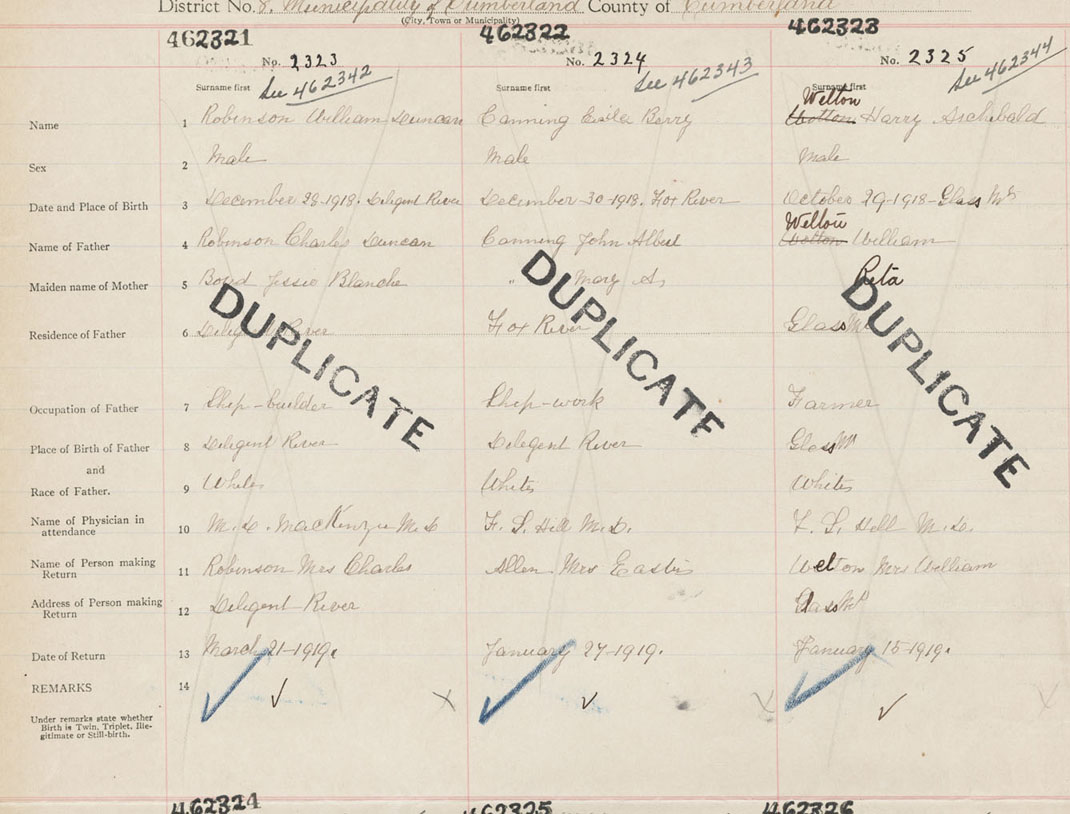 District No. 8. Municipality of Cumberland County of Cumberland
(City, Town or Municipality)
462321 462322 462323
No. 2323 No. 2324 No. 2325
See 462342 See 462343 See 462344
Surname first Surname first Surname first
Welton
Name 1 Robinson William Duncan Canning Eisla Berry Wotton Harry Archibald
Sex 2 Male Male Male
Date and Place of Birth 3 December 28-1918. Deligent River December-30-1918. Fox River October 29-1918-Glass Mt
Welton
Name of Father 4 Robinson Charles Duncan Canning John Albert Wotton William
Maiden name of Mother 5 Boyd Jessie Blanche " Mary A. Rita
Residence of Father 6 Deligent River Fox River Glass Mt
DUPLICATE DUPLICATE DUPLICATE
Occupation of Father 7 Ship-builder Ship-work Farmer
Place of Birth of Father 8 Deligent River Deligent River Glass Mt
and
Race of Father. 9 White White White
Name of Physician in attendance 10 M.D. MacKenzie M.D F. S. Hill M.D. F. S. Hill M.D.
Name of Person making Return 11 Robinson Mrs Charles Allen Mrs Easter Welton Mrs William
Address of Person making Return 12 Deligent River Glass Mt
Date of Return 13 March 21-1919. January 27-1919. January 15-1919.
REMARKS 14
Under remarks state whether
Birth is Twin, Triplet, Ille-
gitimate or Still-birth.
462324 462325 462326